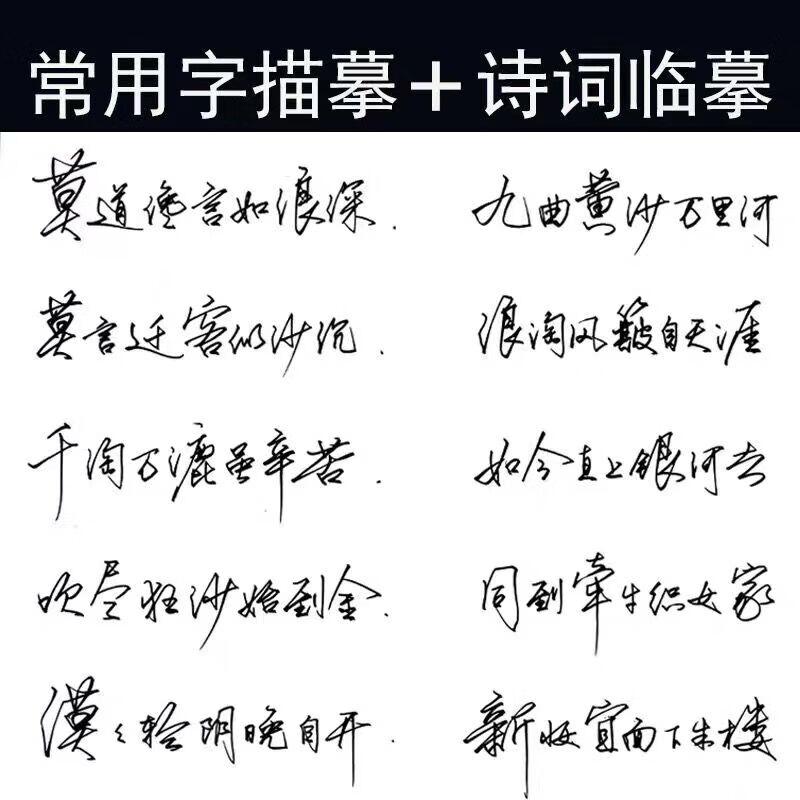 常用字描摹+诗词临摹
莫道谗言如浪深.
莫言迁客似沙沉.
千淘万漉虽辛苦.
吹尽狂沙始到金.
漠々轻阴晚自开.
九曲黄沙万里河
浪淘风簸自天涯
如今直上银河去
同到牵牛织女家
新妆宜面下朱楼